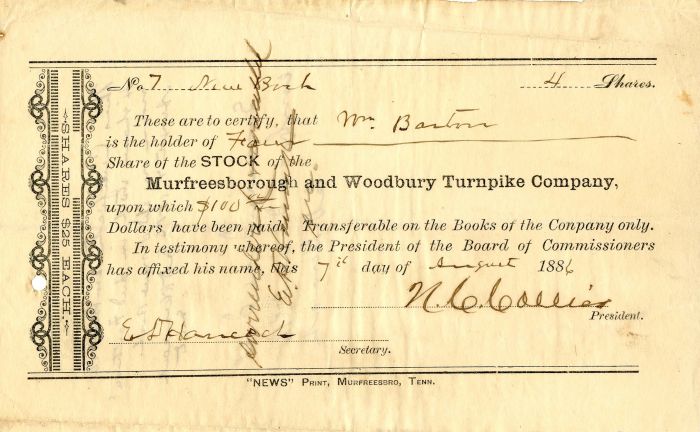 No. 7 New Book 4 Shares.
These are to certify, that Wm. Barton
is the holder of Four
Share of the STOCK of the
Murfreesborough and Woodbury Turnpike Company,
upon which $100
Dollars have been paid. Transferable on the Books of the Conpany only.
In testimony whereof, the President of the Board of Commissioners
has affixed his name, this 7th day of August 1886
N. C. Collier
President.
E D Hancock
Secretary.
"NEWS" PRINT, MURFREESBRO, TENN.
SHARES $25 EACH.